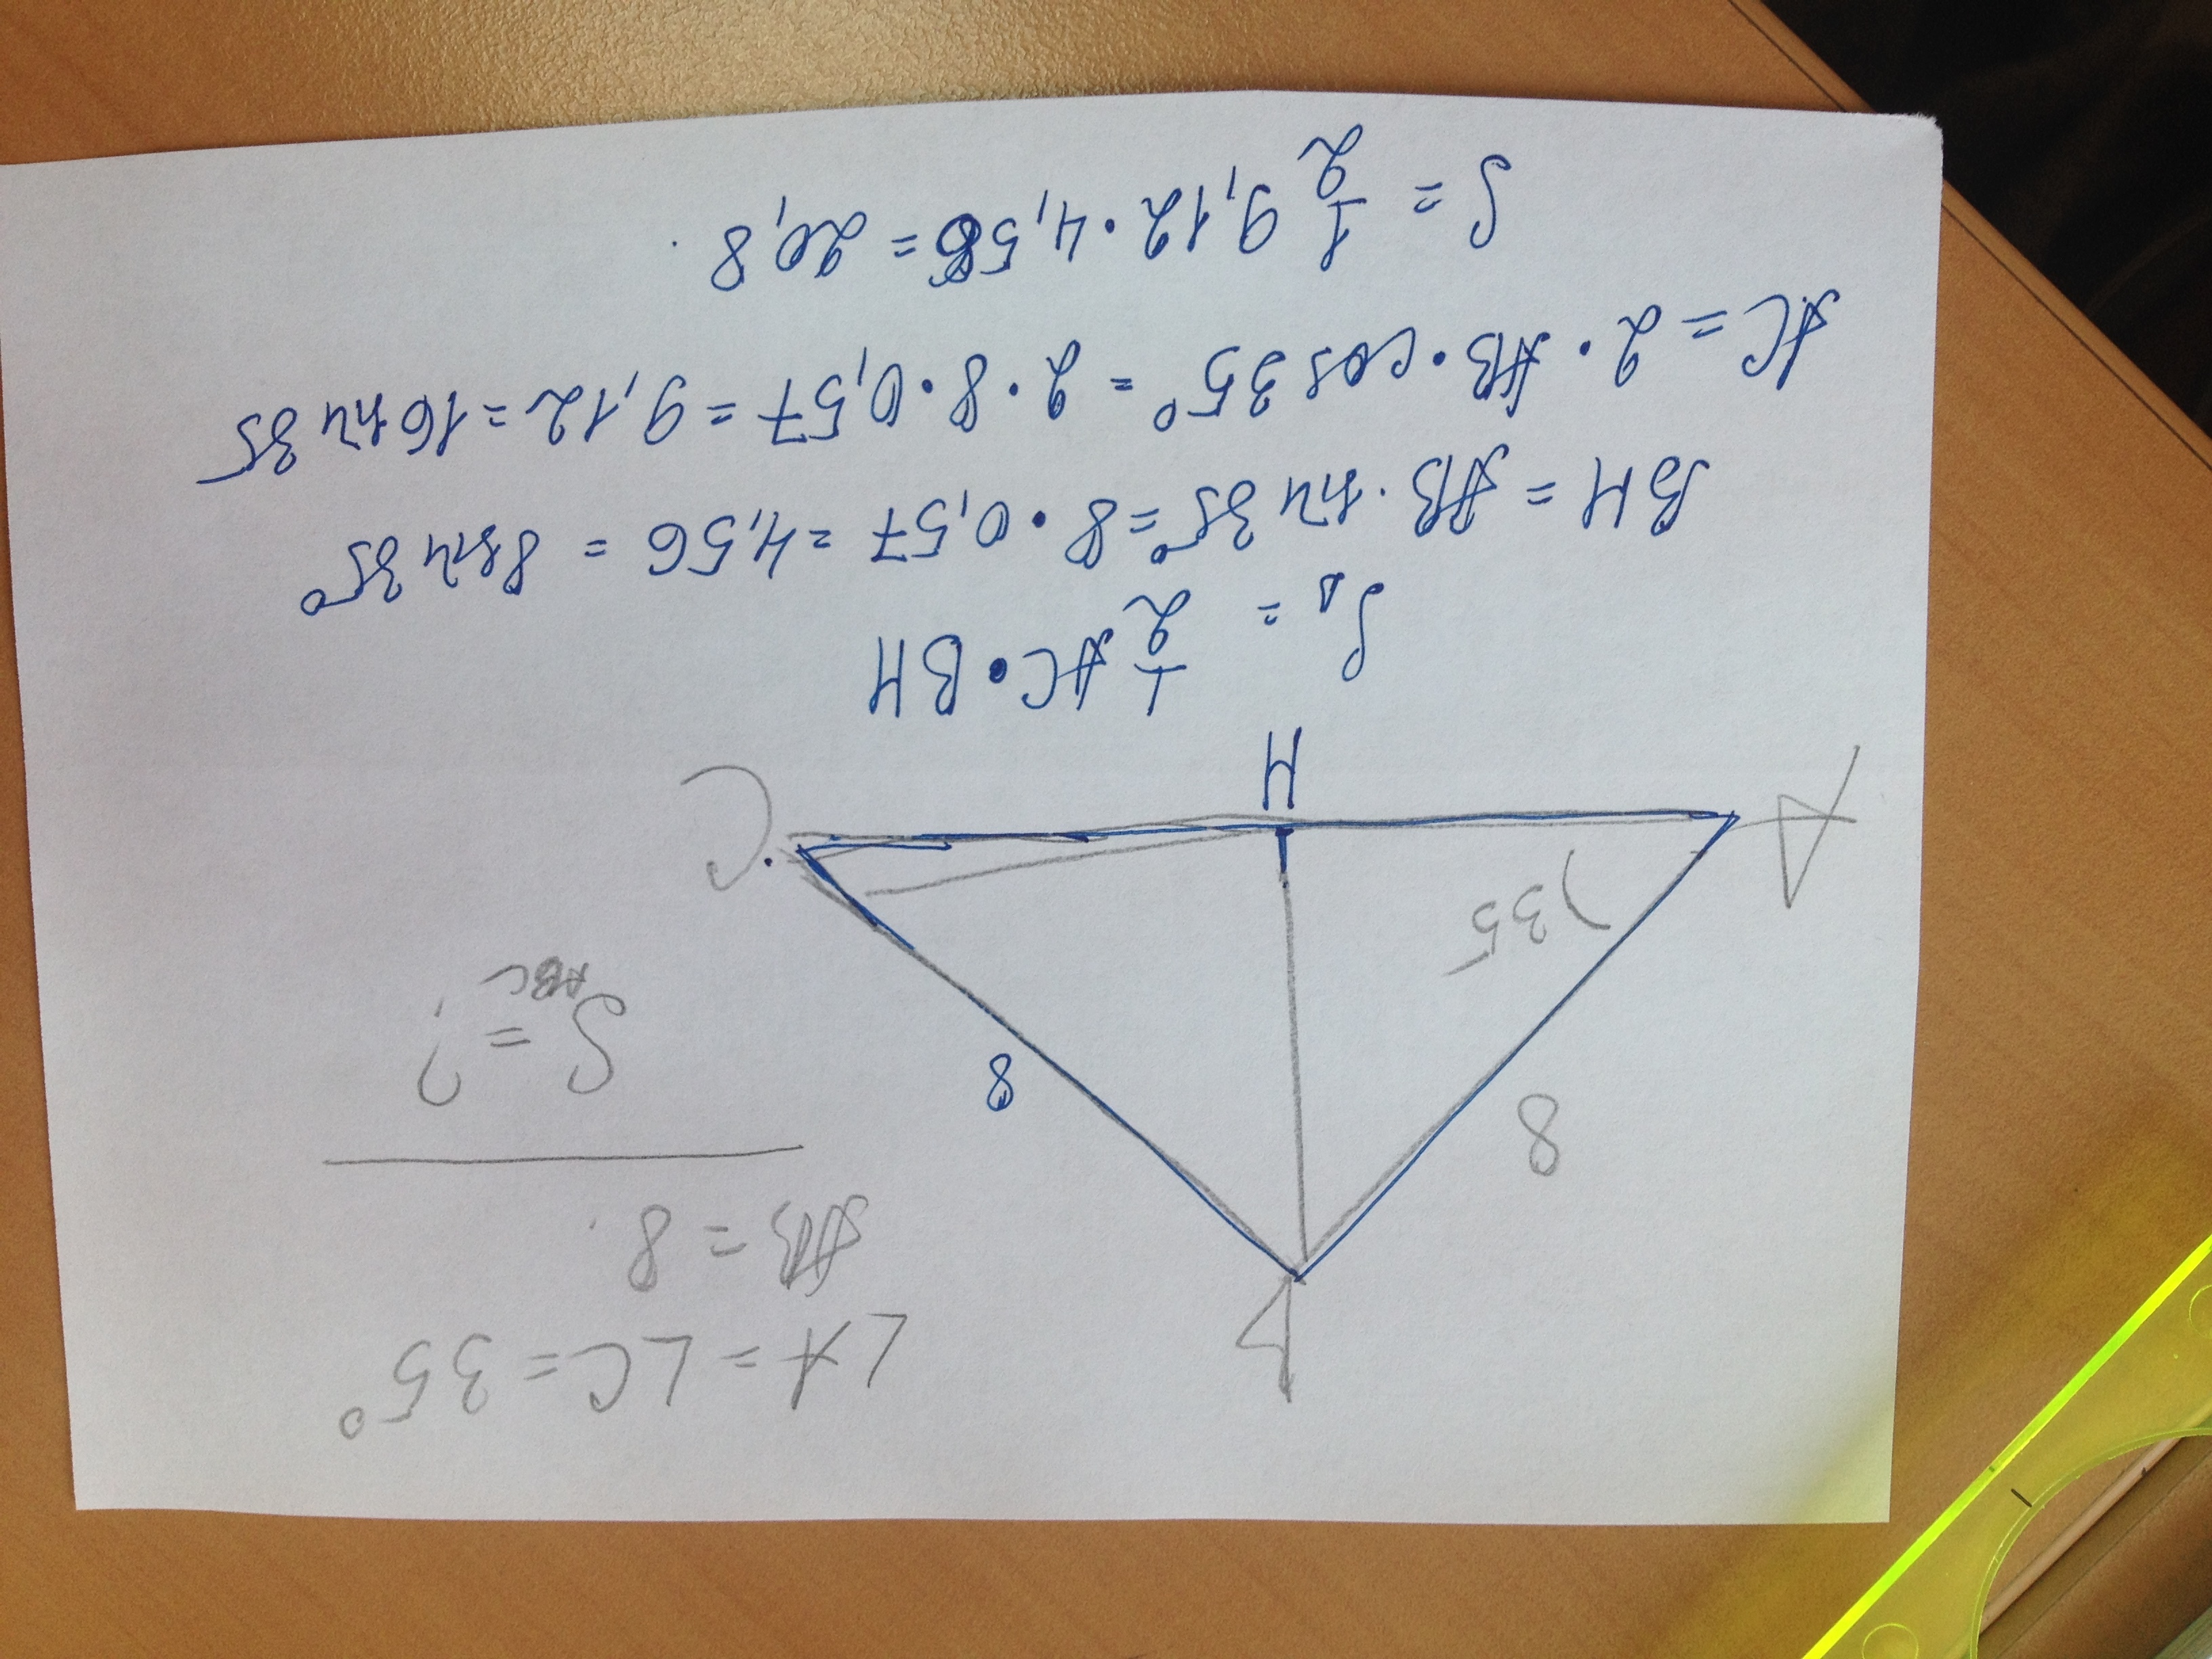 ∠A = ∠C = 35°
AB = 8.
S = ?
ABC
B
8
8
)35
A
H
C.
S△ = 1/2 AC • BH
BH = AB · sin 35° = 8 • 0,57 = 4,56 = 8 sin 35°
AC = 2 · AB • cos 35° = 2 · 8 • 0,57 = 9,12 = 16 sin 35
S = 1/2 9,12 • 4,56 = 20,8.